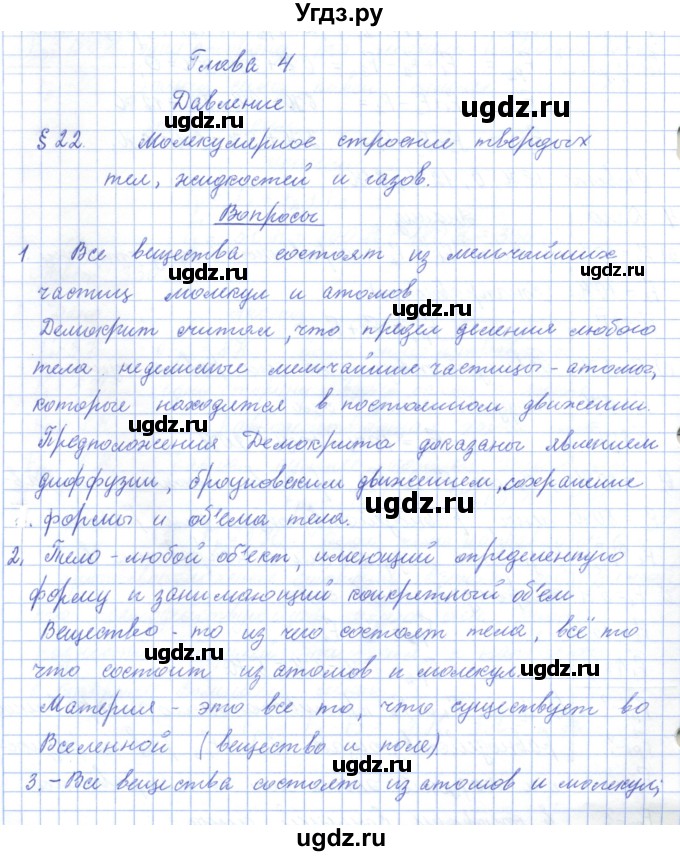 Угдз.ру
Глава 4
Давление.
§ 22. Молекулярное строение твердых
тел, жидкостей и газов.
Вопросы
1 Все вещества состоят из мельчайших
частиц молекул и атомов
Демокрит считал, что предел деления любого
тела неделимые мельчайшие частицы - атомы,
которые находятся в постоянном движении.
Предположения Демокрита доказаны явлением
диффузии, броуновским движением, сохранение
формы и об'ема тела.
2. Тело - любой об'ект, имеющий определенную
форму и занимающий конкретный об'ем
Вещество - то из чего состоят тела, всё то
что состоит из атомов и молекул.
Материя - это все то, что существует во
Вселенной (вещество и поле)
3. - Все вещества состоят из атомов и молекул;
ugdz.ru
ugdz.ru
ugdz.ru
ugdz.ru
ugdz.ru
ugdz.ru
ugdz.ru
ugdz.ru
ugdz.ru
ugdz.ru
ugdz.ru
ugdz.ru